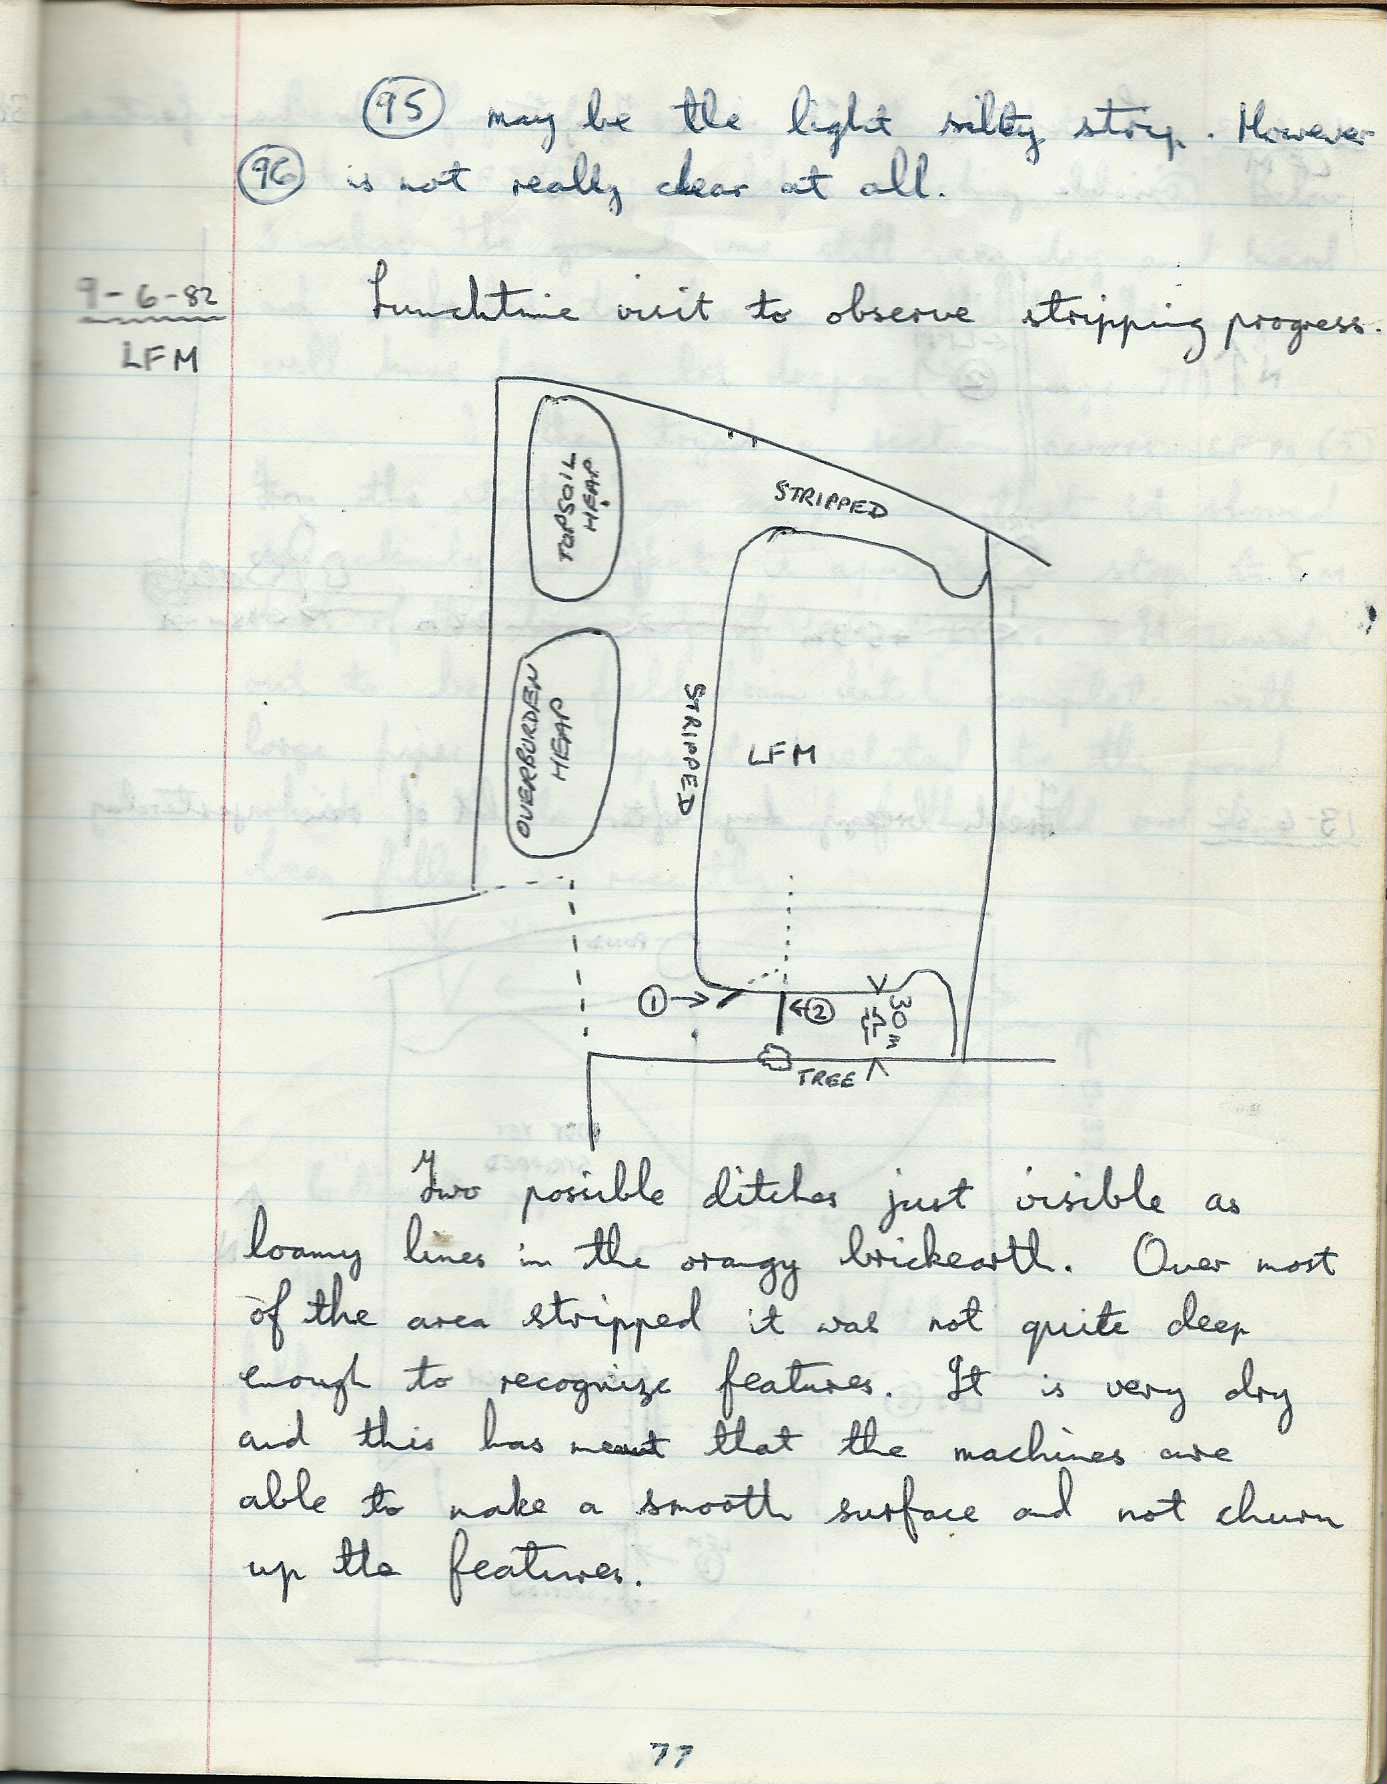 95 may be the light silty strip. However
96 is not really clear at all.
9-6-82
LFM
Lunchtime visit to observe stripping progress.
TOPSOIL
HEAP
STRIPPED
OVERBURDEN
HEAP
STRIPPED
LFM
1
2
30m
TREE
Two possible ditches just visible as
loamy lines in the orangy brickearth. Over most
of the area stripped it was not quite deep
enough to recognize features. It is very dry
and this has meant that the machines are
able to make a smooth surface and not churn
up the features.
77